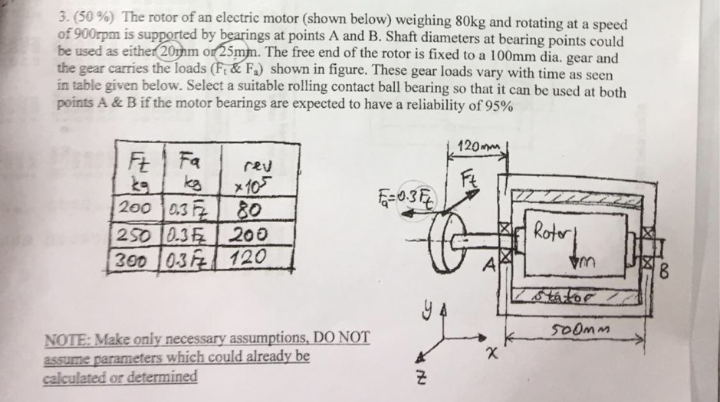 3. (50 %) The rotor of an electric motor (shown below) weighing 80kg and rotating at a speed
of 900rpm is supported by bearings at points A and B. Shaft diameters at bearing points could
be used as either 20mm or 25mm. The free end of the rotor is fixed to a 100mm dia. gear and
the gear carries the loads (Ft & Fa) shown in figure. These gear loads vary with time as seen
in table given below. Select a suitable rolling contact ball bearing so that it can be used at both
points A & B if the motor bearings are expected to have a reliability of 95%
Ft Fa rev
kg kg ×10⁵
200 0.3 Ft 80
250 0.3 Ft 200
300 0.3 Ft 120
120mm
Ft
Fa=0.3Ft
Rotor
m
A
B
stator
500mm
y
x
z
NOTE: Make only necessary assumptions, DO NOT
assume parameters which could already be
calculated or determined